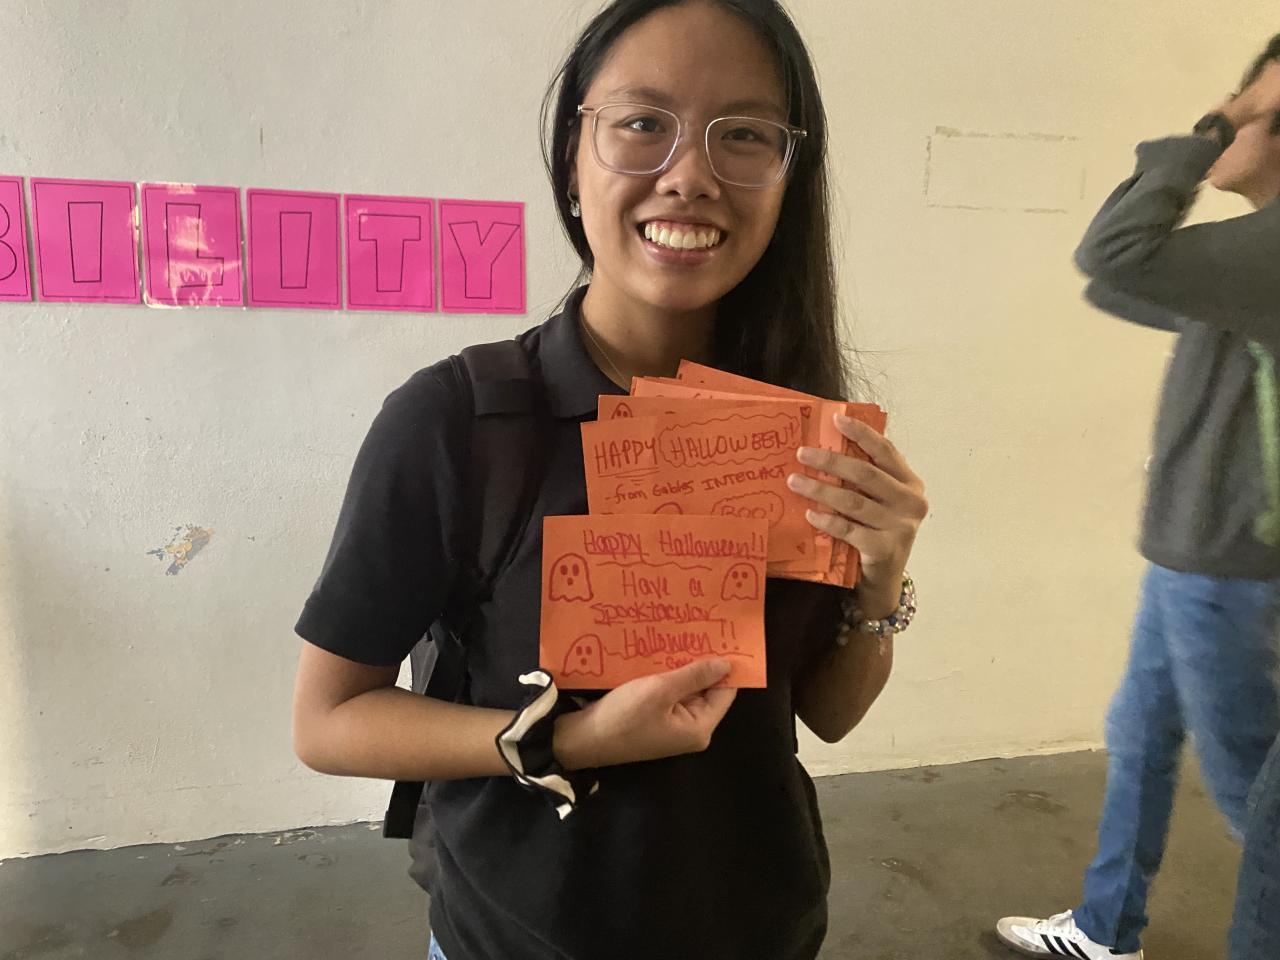 BILITY
HAPPY HALLOWEEN!
-from Gables INTERACT
BOO!
Happy Halloween!!
Have a
Spooktacular
Halloween!!